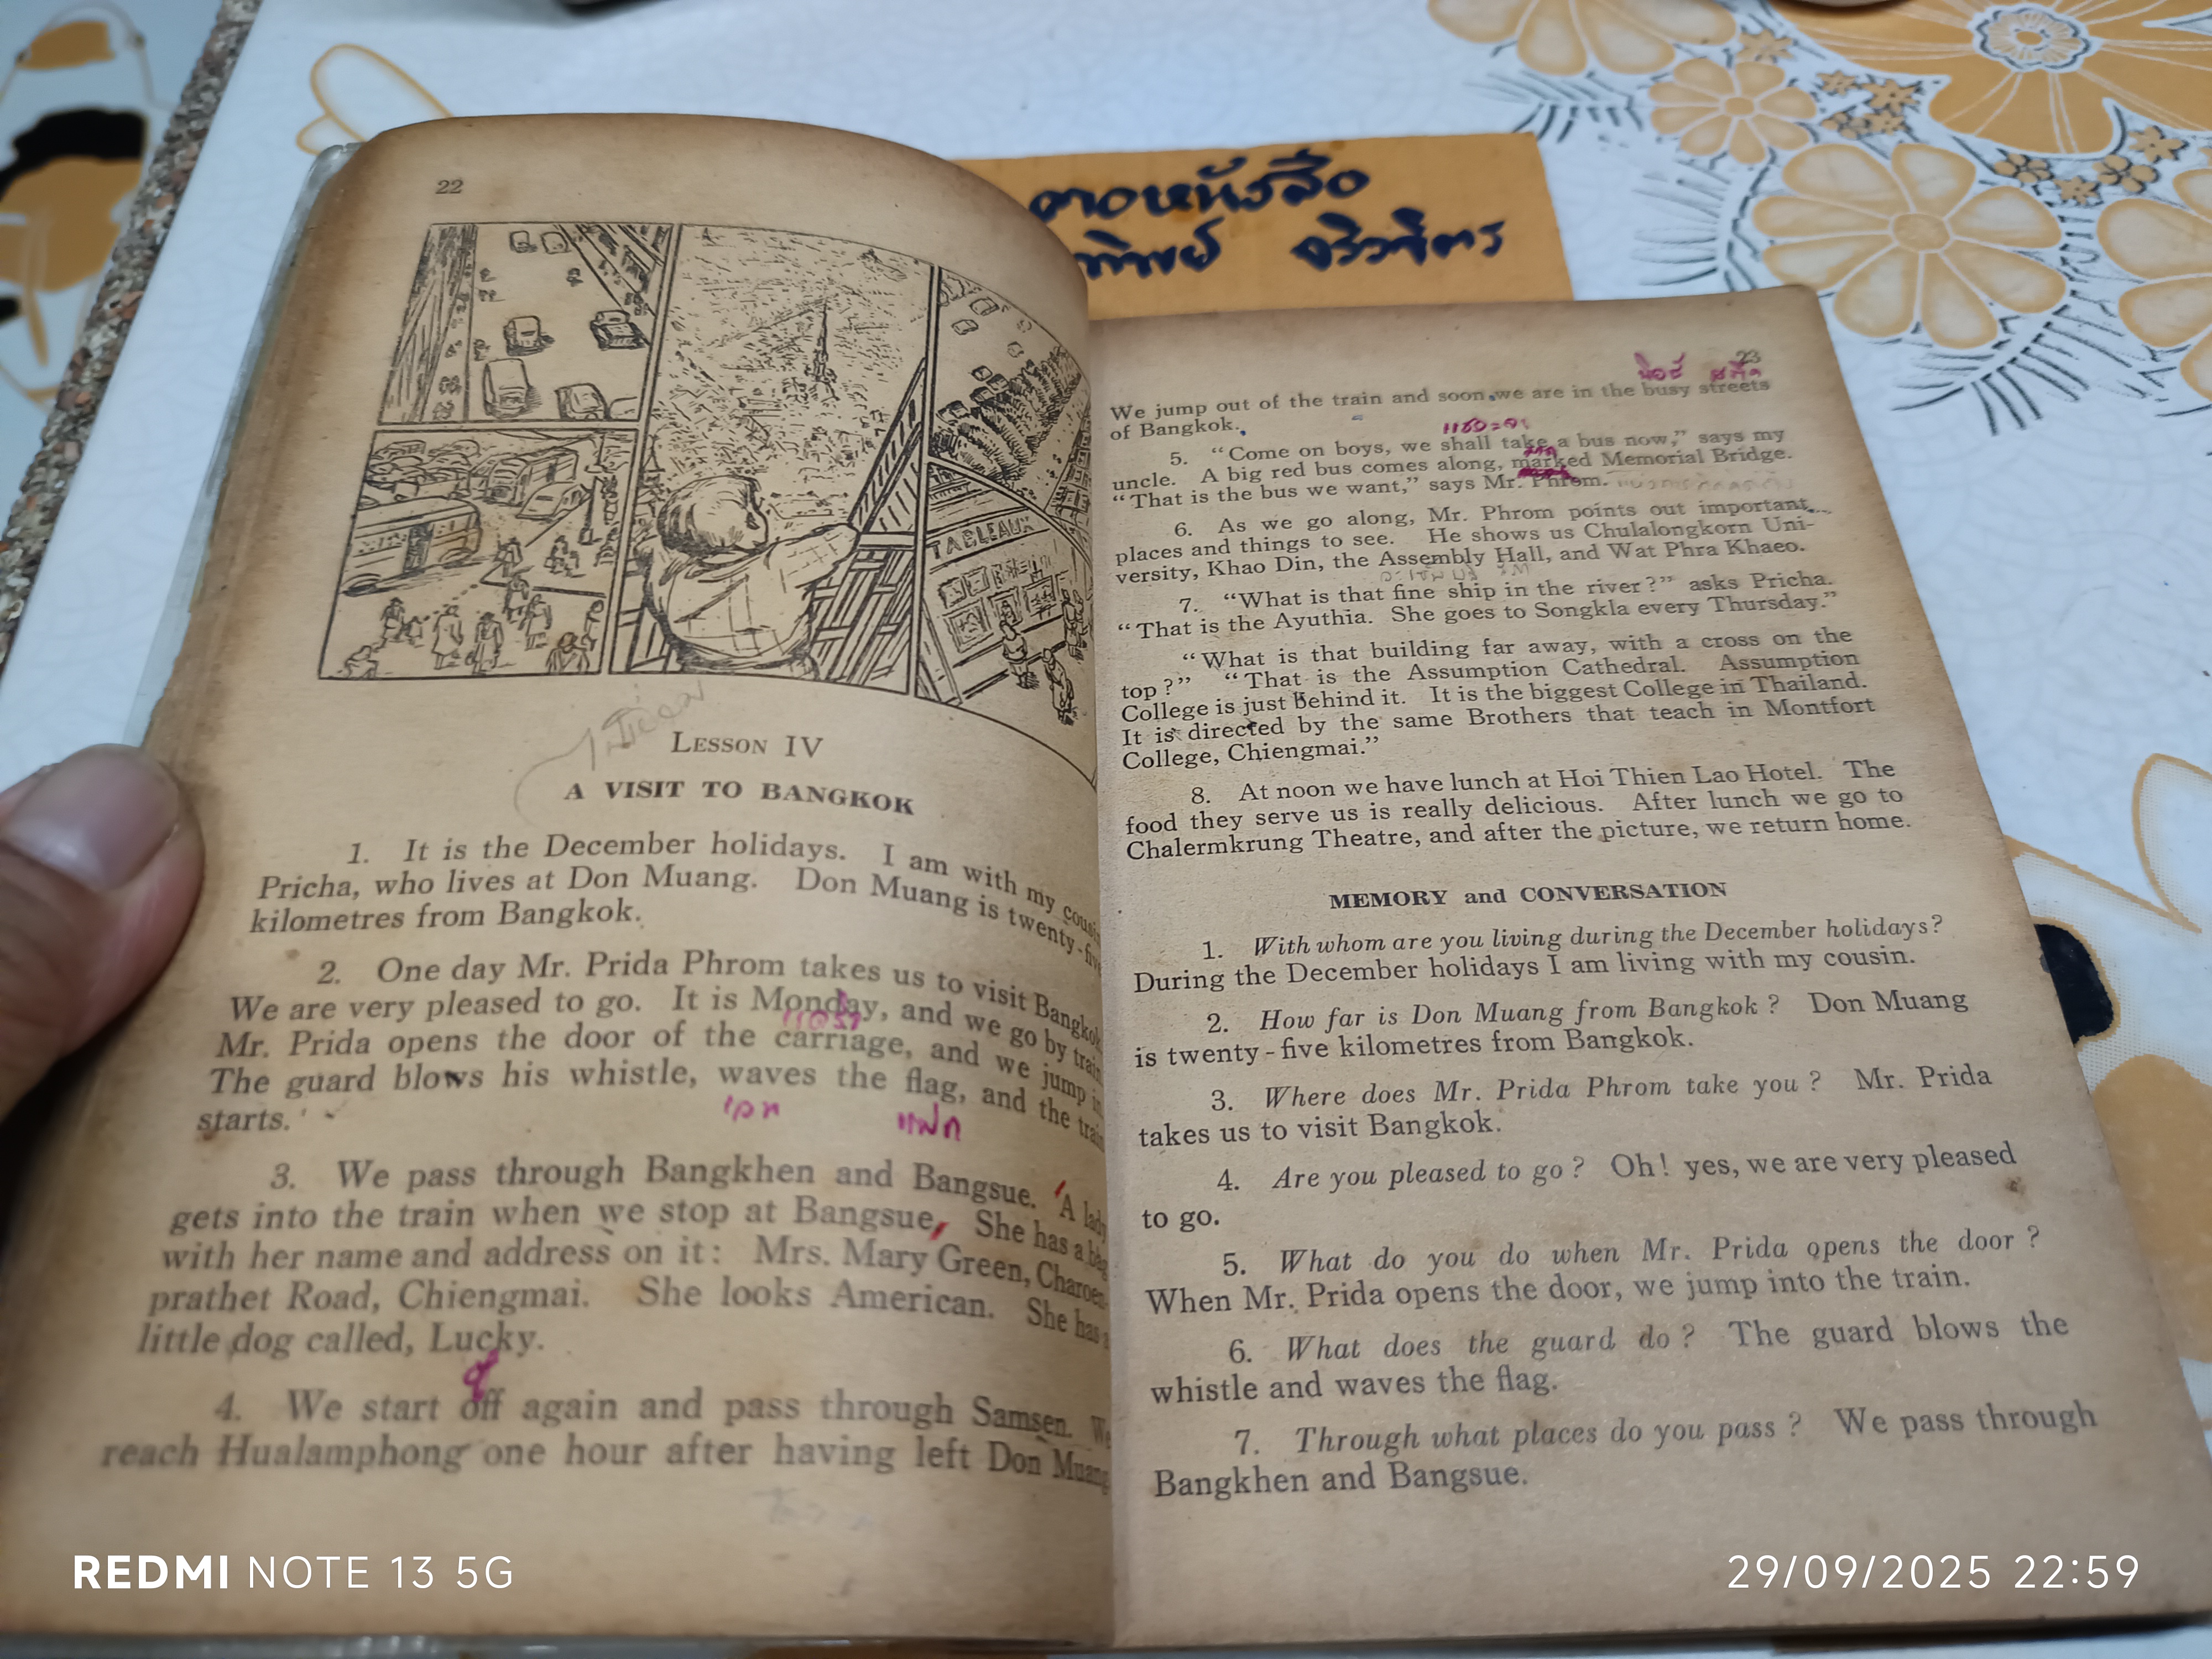 22
TABLEAUX
LESSON IV
A VISIT TO BANGKOK
1. It is the December holidays. I am with my cousin
Pricha, who lives at Don Muang. Don Muang is twenty-five
kilometres from Bangkok.
2. One day Mr. Prida Phrom takes us to visit Bangkok
We are very pleased to go. It is Monday, and we go by train
Mr. Prida opens the door of the carriage, and we jump in
The guard blows his whistle, waves the flag, and the train
starts.
เวฟ แฟก
3. We pass through Bangkhen and Bangsue. A lady
gets into the train when we stop at Bangsue, She has a bag
with her name and address on it: Mrs. Mary Green, Charoen-
prathet Road, Chiengmai. She looks American. She has a
little dog called, Lucky.
4. We start off again and pass through Samsen. We
reach Hualamphong one hour after having left Don Muang
หนังสือ
23
We jump out of the train and soon we are in the busy streets
of Bangkok.
5. “Come on boys, we shall take a bus now,” says my
uncle. A big red bus comes along, marked Memorial Bridge.
“That is the bus we want,” says Mr. Phrom.
6. As we go along, Mr. Phrom points out important
places and things to see. He shows us Chulalongkorn Uni-
versity, Khao Din, the Assembly Hall, and Wat Phra Khaeo.
7. “What is that fine ship in the river?” asks Pricha.
“That is the Ayuthia. She goes to Songkla every Thursday.”
“What is that building far away, with a cross on the
top?” “That is the Assumption Cathedral. Assumption
College is just behind it. It is the biggest College in Thailand.
It is directed by the same Brothers that teach in Montfort
College, Chiengmai.”
8. At noon we have lunch at Hoi Thien Lao Hotel. The
food they serve us is really delicious. After lunch we go to
Chalermkrung Theatre, and after the picture, we return home.
MEMORY and CONVERSATION
1. With whom are you living during the December holidays?
During the December holidays I am living with my cousin.
2. How far is Don Muang from Bangkok? Don Muang
is twenty-five kilometres from Bangkok.
3. Where does Mr. Prida Phrom take you? Mr. Prida
takes us to visit Bangkok.
4. Are you pleased to go? Oh! yes, we are very pleased
to go.
5. What do you do when Mr. Prida opens the door?
When Mr. Prida opens the door, we jump into the train.
6. What does the guard do? The guard blows the
whistle and waves the flag.
7. Through what places do you pass? We pass through
Bangkhen and Bangsue.
REDMI NOTE 13 5G
29/09/2025 22:59